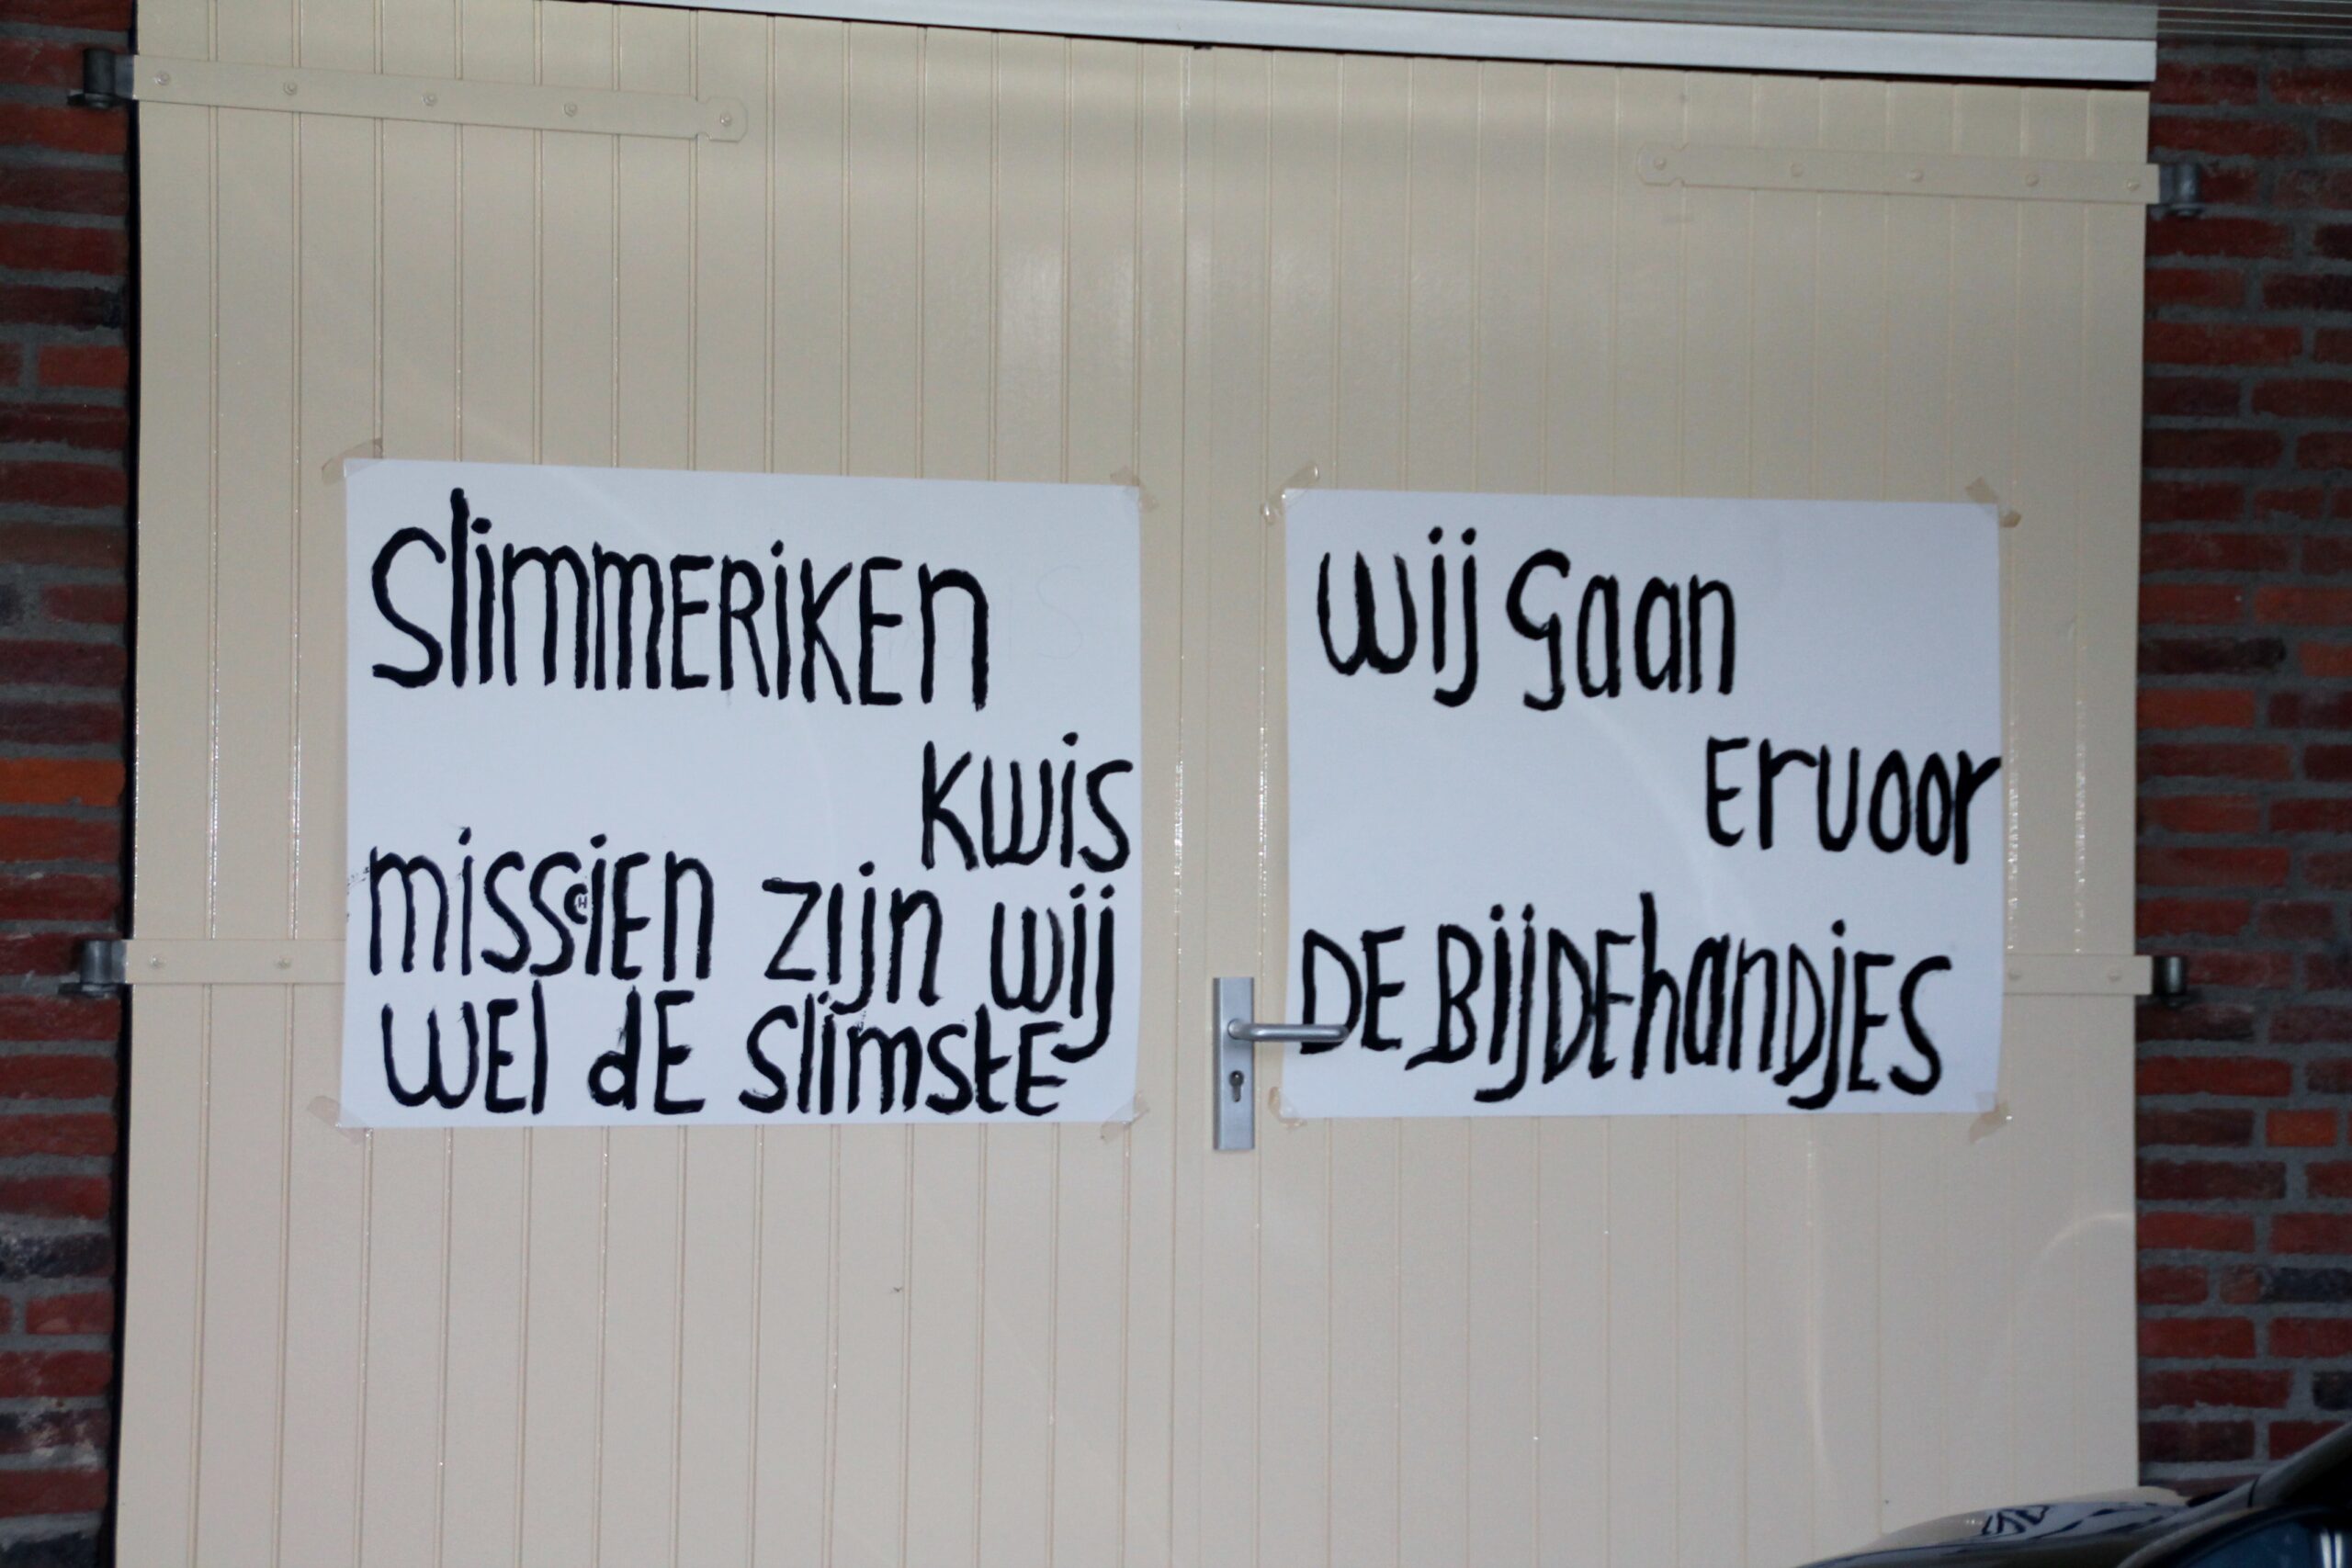 SlimmERiKEn
kwis
misschiEn zijn wij
wEl dE SlimstE
wij gaan
Ervoor
DE BijDEhanDjES